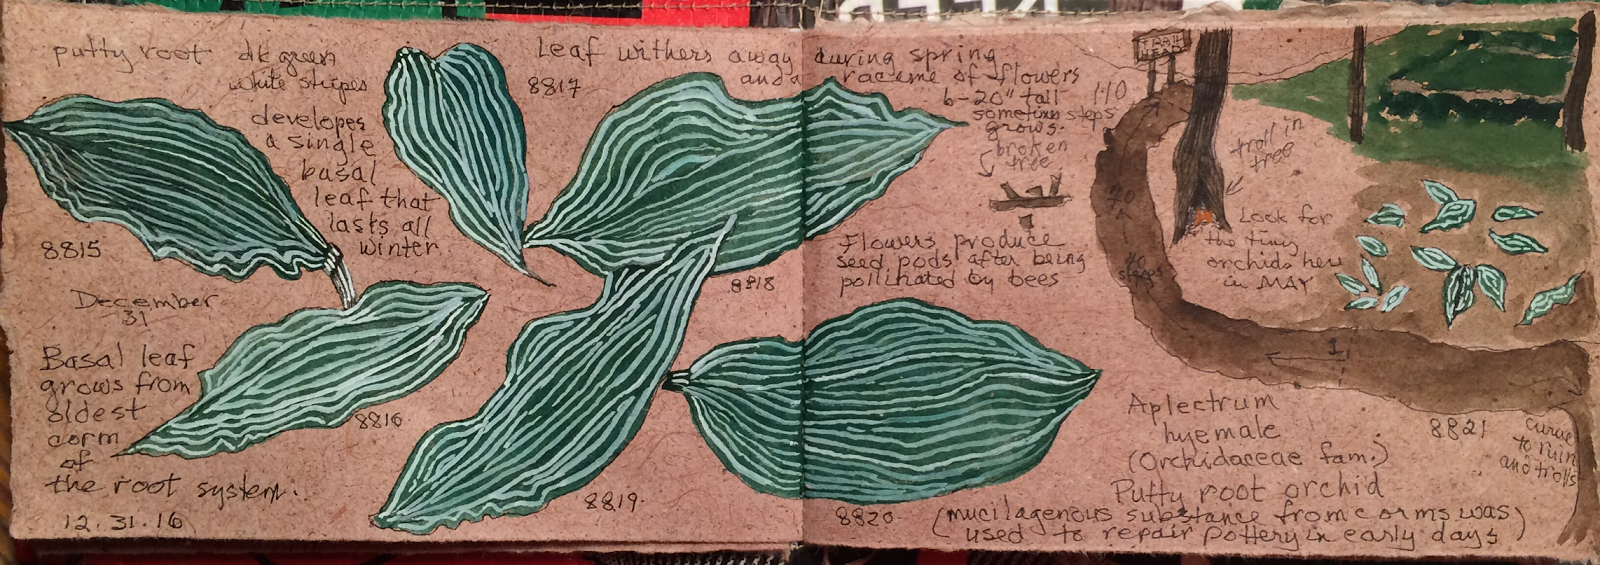 putty root
dk green
white stripes
developes
a single
basal
leaf that
lasts all
winter
8815
December
31
Basal leaf
grows from
oldest
corm
of
the root system.
12.31.16
8816
8817
Leaf withers away during spring
and a raceme of flowers
6-20" tall
sometimes
grows.
8818
8819
Flowers produce
seed pods after being
pollinated by bees
8820
broken
tree
110
steps
70
40
steps
1
TRAIL
HEAD
troll in
tree
Look for
the tiny
orchids here
in MAY
8821
curve
to ruin
and trolls
Aplectrum
hyemale
(Orchidaceae fam.)
Putty root orchid
(mucilagenous substance from corms was
used to repair pottery in early days)